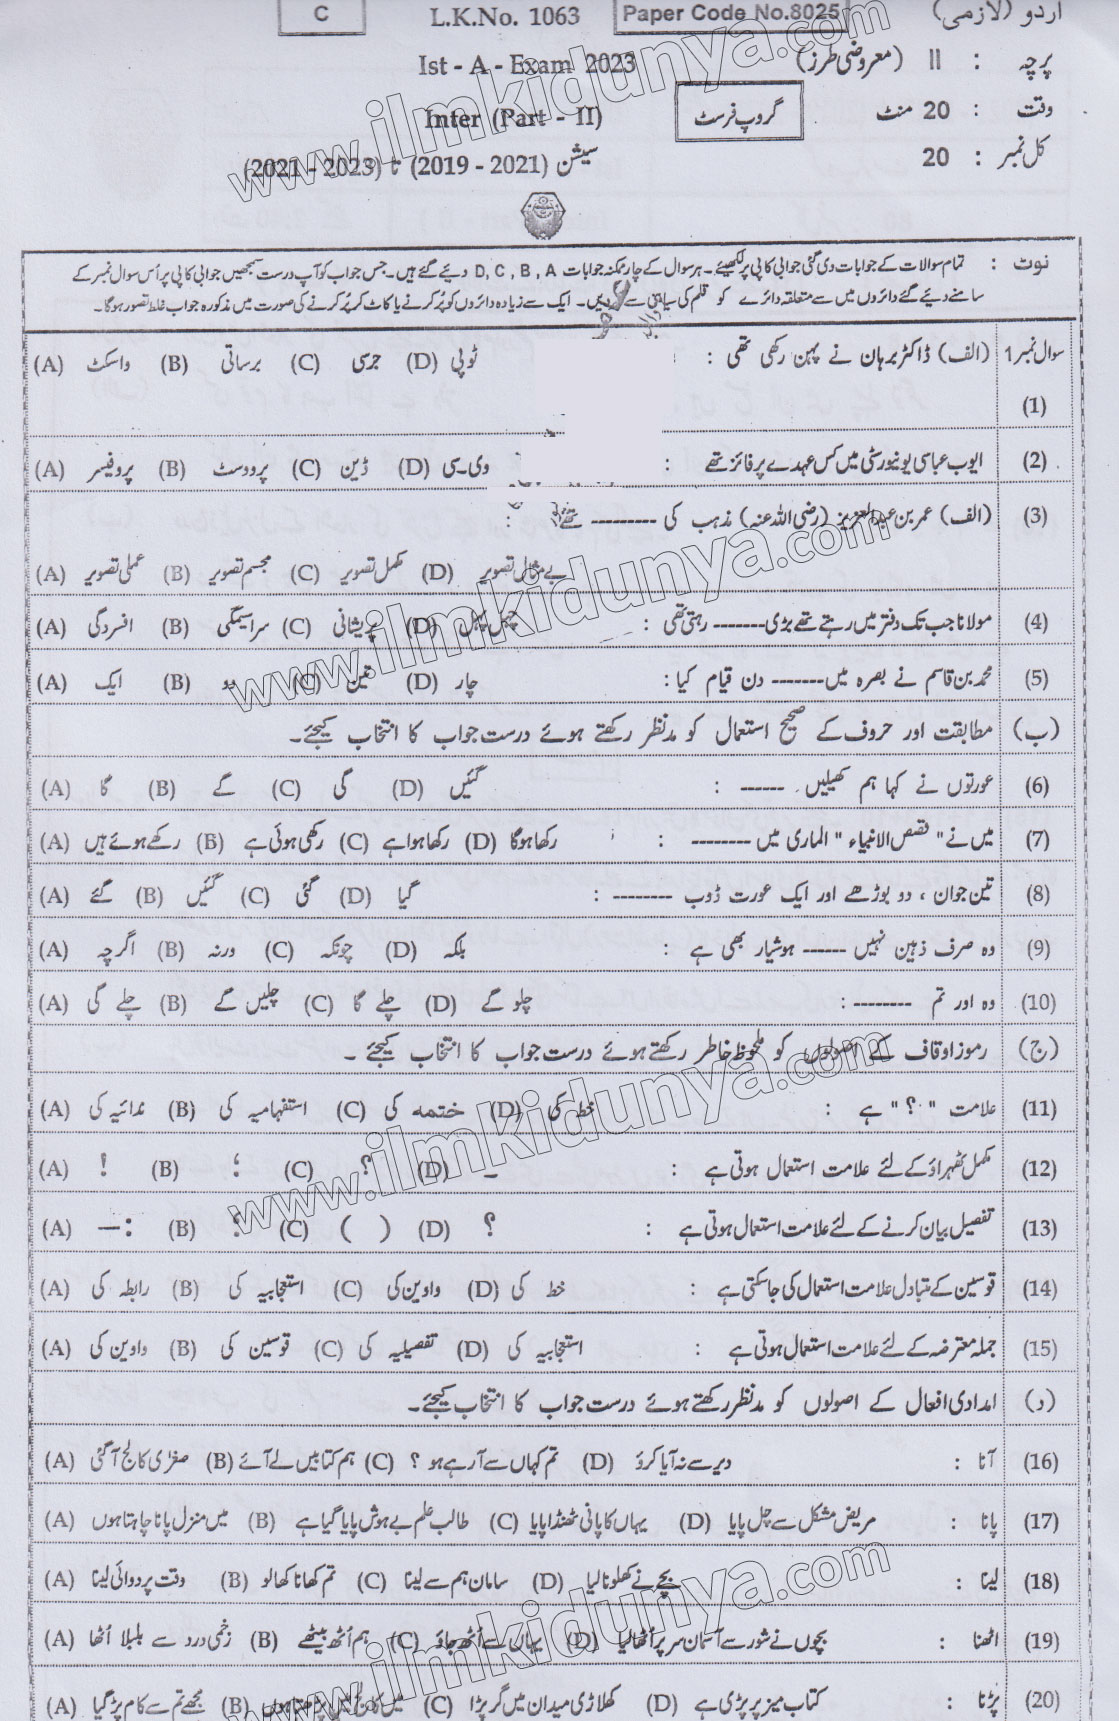 C
L.K.No. 1063
Paper Code No.8025
اردو (لازمی)
Ist - A - Exam 2023
پرچہ : II (معروضی طرز)
Inter (Part - II)
گروپ فرسٹ
وقت : 20 منٹ
سیشن (2019 - 2021) تا (2021 - 2023)
کل نمبر : 20
نوٹ : تمام سوالات کے جوابات دی گئی جوابی کاپی پر لکھیئے۔ ہر سوال کے چار ممکنہ جوابات D, C, B, A دیئے گئے ہیں۔ جس جواب کو آپ درست سمجھیں جوابی کاپی پر اُس سوال نمبر کے
سامنے دیئے گئے دائروں میں سے متعلقہ دائرے کو قلم کی سیاہی سے دیں۔ ایک سے زیادہ دائروں کو پُر کرنے یا کاٹ کر پُر کرنے کی صورت میں مذکورہ جواب غلط تصور ہوگا۔
سوال نمبر 1 (الف) ڈاکٹر برہان نے پہن رکھی تھی : (A) واسکٹ (B) برساتی (C) جرسی (D) ٹوپی
(1)
(2) ایوب عباسی یونیورسٹی میں کس عہدے پر فائز تھے : (A) پروفیسر (B) پرووسٹ (C) ڈین (D) وی۔سی
(3) (الف) عمر بن عبدالعزیز (رضی اللہ عنہ) مذہب کی --------- تھے :
(A) عملی تصویر (B) مجسم تصویر (C) مکمل تصویر (D) بے مثال تصویر
(4) مولانا جب تک دفتر میں رہتے تھے بڑی ------- رہتی تھی : (A) افسردگی (B) سراسیمگی (C) پریشانی (D) چہل پہل
(5) محمد بن قاسم نے بصرہ میں ------- دن قیام کیا : (A) ایک (B) دو (C) تین (D) چار
(ب) مطابقت اور حروف کے صحیح استعمال کو مدنظر رکھتے ہوئے درست جواب کا انتخاب کیجئے۔
(6) عورتوں نے کہا ہم کھیلیں ------ : (A) گا (B) گے (C) گی (D) گئیں
(7) میں نے "قصص الانبیاء" الماری میں -------- : (A) رکھے ہوئے ہیں (B) رکھی ہوئی ہے (C) رکھا ہوا ہے (D) رکھا ہوگا
(8) تین جوان ، دو بوڑھے اور ایک عورت ڈوب -------- : (A) گئے (B) گئیں (C) گئی (D) گیا
(9) وہ صرف ذہین نہیں ------ ہوشیار بھی ہے : (A) اگرچہ (B) ورنہ (C) چونکہ (D) بلکہ
(10) وہ اور تم -------- : (A) چلے گی (B) چلیں گے (C) چلے گا (D) چلو گے
(ج) رموز اوقاف کے اصولوں کو ملحوظ خاطر رکھتے ہوئے درست جواب کا انتخاب کیجئے ۔
(11) علامت " ؟ " ہے : (A) ندائیہ کی (B) استفہامیہ کی (C) ختمہ کی (D) خط کی
(12) مکمل ٹھہراؤ کے لئے علامت استعمال ہوتی ہے : (A) ! (B) ؛ (C) ؟ (D) ۔
(13) تفصیل بیان کرنے کے لئے علامت استعمال ہوتی ہے : (A) :— (B) ؛ (C) ( ) (D) ؟
(14) قوسین کے متبادل علامت استعمال کی جاسکتی ہے : (A) رابطہ کی (B) استعجابیہ کی (C) واوین کی (D) خط کی
(15) جملہ معترضہ کے لئے علامت استعمال ہوتی ہے : (A) واوین کی (B) قوسین کی (C) تفصیلیہ کی (D) استعجابیہ کی
(د) امدادی افعال کے اصولوں کو مدنظر رکھتے ہوئے درست جواب کا انتخاب کیجئے۔
(16) آنا : (A) صغریٰ کالج آگئی (B) ہم کتابیں لے آئے (C) تم کہاں سے آرہے ہو ؟ (D) دیر سے نہ آیا کرو
(17) پانا : (A) میں منزل پانا چاہتا ہوں (B) طالب علم بے ہوش پایا گیا ہے (C) یہاں کا پانی ٹھنڈا پایا (D) مریض مشکل سے چل پایا
(18) لینا : (A) وقت پر دوائی لینا (B) تم کھانا کھالو (C) سامان ہم سے لینا (D) بچے نے کھلونا لیا
(19) اٹھنا : (A) زخمی درد سے بلبلا اُٹھا (B) ہم اُٹھ بیٹھے (C) یہاں سے اُٹھ جاؤ (D) بچوں نے شور سے آسمان سر پر اُٹھا لیا
(20) پڑنا : (A) مجھے تم سے کام پڑ گیا (B) میں پڑھتا ہوں (C) کھلاڑی میدان میں گر پڑا (D) کتاب میز پر پڑی ہے
www.ilmkidunya.com
www.ilmkidunya.com
www.ilmkidunya.com
www.ilmkidunya.com